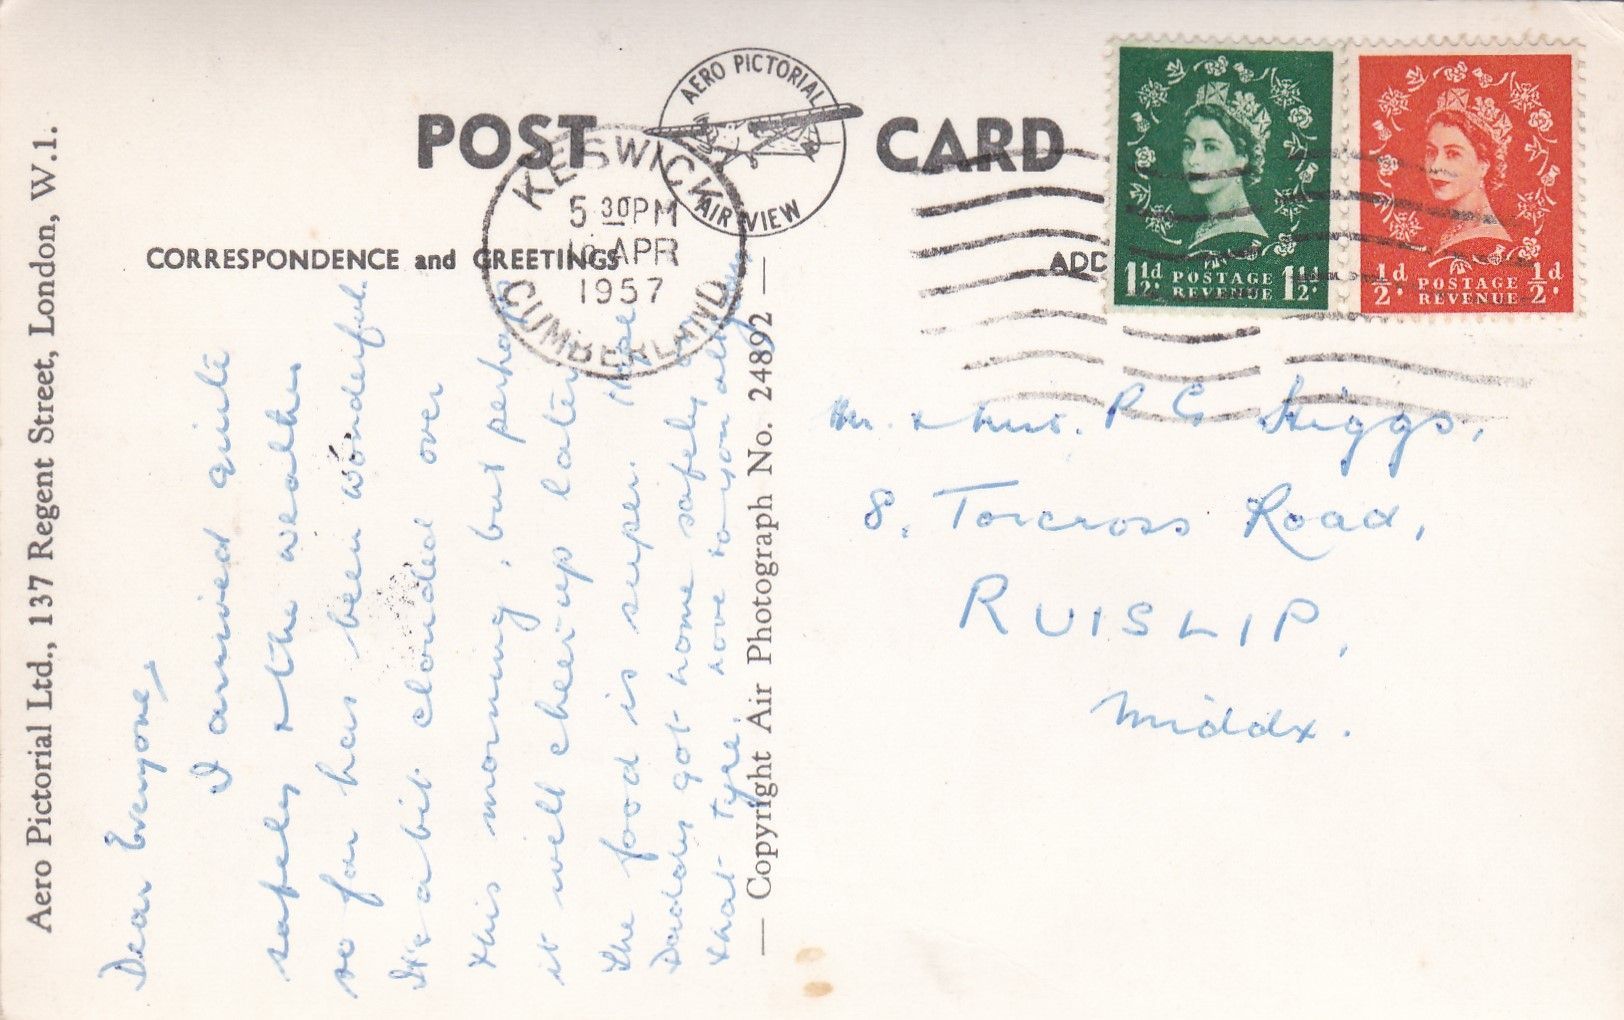 POST CARD
AERO PICTORIAL
AIR VIEW
KESWICK
5 30PM
APR
1957
CUMBERLAND
CORRESPONDENCE and GREETINGS
ADD
1½d POSTAGE REVENUE 1½d
½d POSTAGE REVENUE ½d
Aero Pictorial Ltd., 137 Regent Street, London, W.1.
Dear Everyone,
I arrived quite
safely & the weather
so far has been wonderful.
It's a bit clouded over
this morning, but perhaps
it will cheer up later.
The food is super. Hope
Daddy got home safely
that tyre. Love to you all
— Copyright Air Photograph No. 24892 —
Mr. & Mrs. P G Higgs,
8. Torcross Road,
RUISLIP,
Middx.